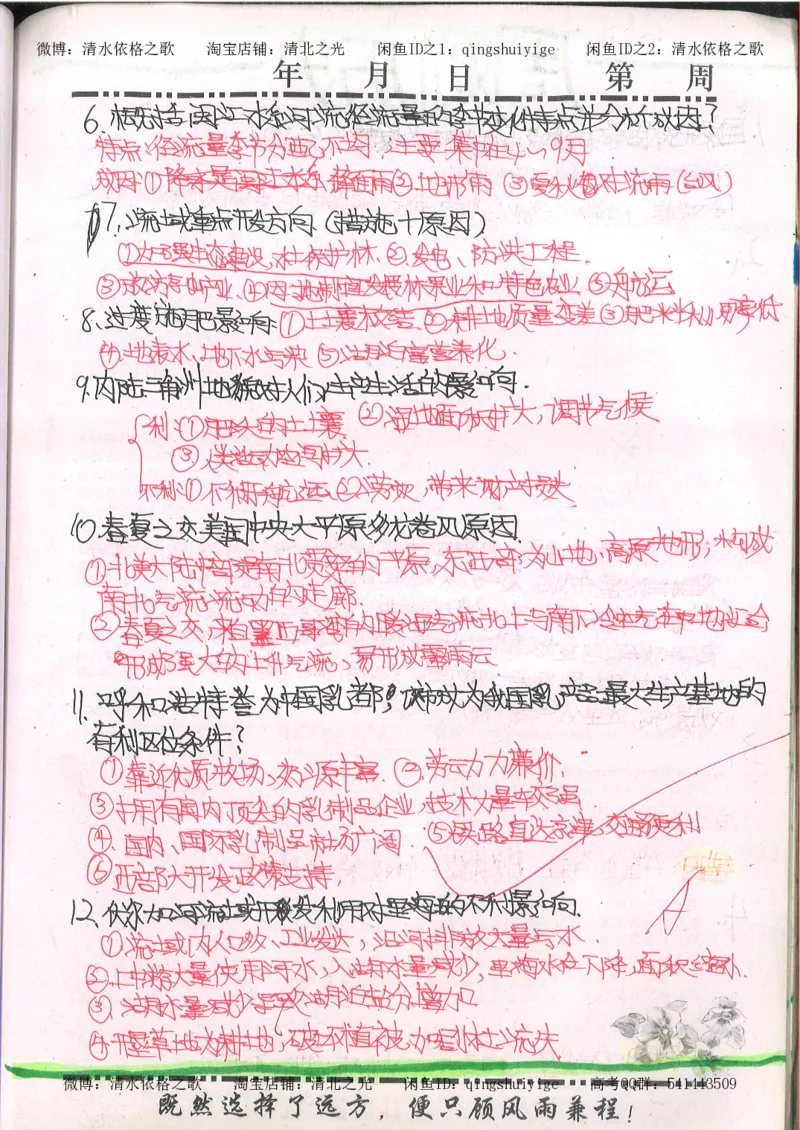 微博：清水依格之歌 淘宝店铺：清北之光 闲鱼ID之1：qingshuiyige 闲鱼ID之2：清水依格之歌
年 月 日 第 周
6. 概括闽江水系河流径流量的季节变化特点并分析成因？
特点：径流量季节分配不均，主要集中在4～9月
成因：① 降水 锋面雨 ② 地形雨 ③ 夏秋 对流雨（台风）
7. 流域重点开发方向（措施＋原因）
① 加强生态建设，水土保护林 ② 发电、防洪工程.
③ 矿产业 ④ 因地制宜发展林果业和特色农业 ⑤ 航运
8. 过度施肥影响：① 土壤板结 ② 耕地质量变差 ③ 肥料利用率低
④ 地表水、地下水污染 ⑤ 湖泊富营养化.
9. 内陆三角洲地貌对人们生产生活的影响.
利 ① 肥沃的土壤 ② 湿地面积扩大，调节气候
③ 人类活动空间扩大
不利 ① 不利于航运 ② 带来财产损失
10. 春夏之交美国中央大平原多龙卷风原因.
① 北美大陆中部为南北贯穿的平原，东西部为山地、高原地形，构成
南北气流流动的走廊.
② 春夏之交，来自墨西哥湾的暖湿气流北上与南下冷空气在本地交会
形成强大的上升气流，易形成雷雨云
11. 呼和浩特誉为中国乳都，该城成为我国乳产品最大生产基地的
有利区位条件？
① 靠近优质牧场，奶源丰富 ② 劳动力廉价，
③ 拥有国内顶尖的乳制品企业，技术力量较强
④ 国内、国际乳制品市场广阔 ⑤ 铁路直达京津，交通便利
⑥ 西部大开发政策支持，
12. 伏尔加河流域开发利用对里海的不利影响.
① 流域内人口多、工业发达，沿河排放大量污水.
② 上中游大量使用河水，入湖水量减少，里海水位下降，面积缩小.
③ 湖水量减少导致湖泊盐分增加
④ 开垦草地为耕地，破坏植被，加剧水土流失
微博：清水依格之歌 淘宝店铺：清北之光 闲鱼ID：qingshuiyige 高考QQ群：541443509
既然选择了远方，便只顾风雨兼程！